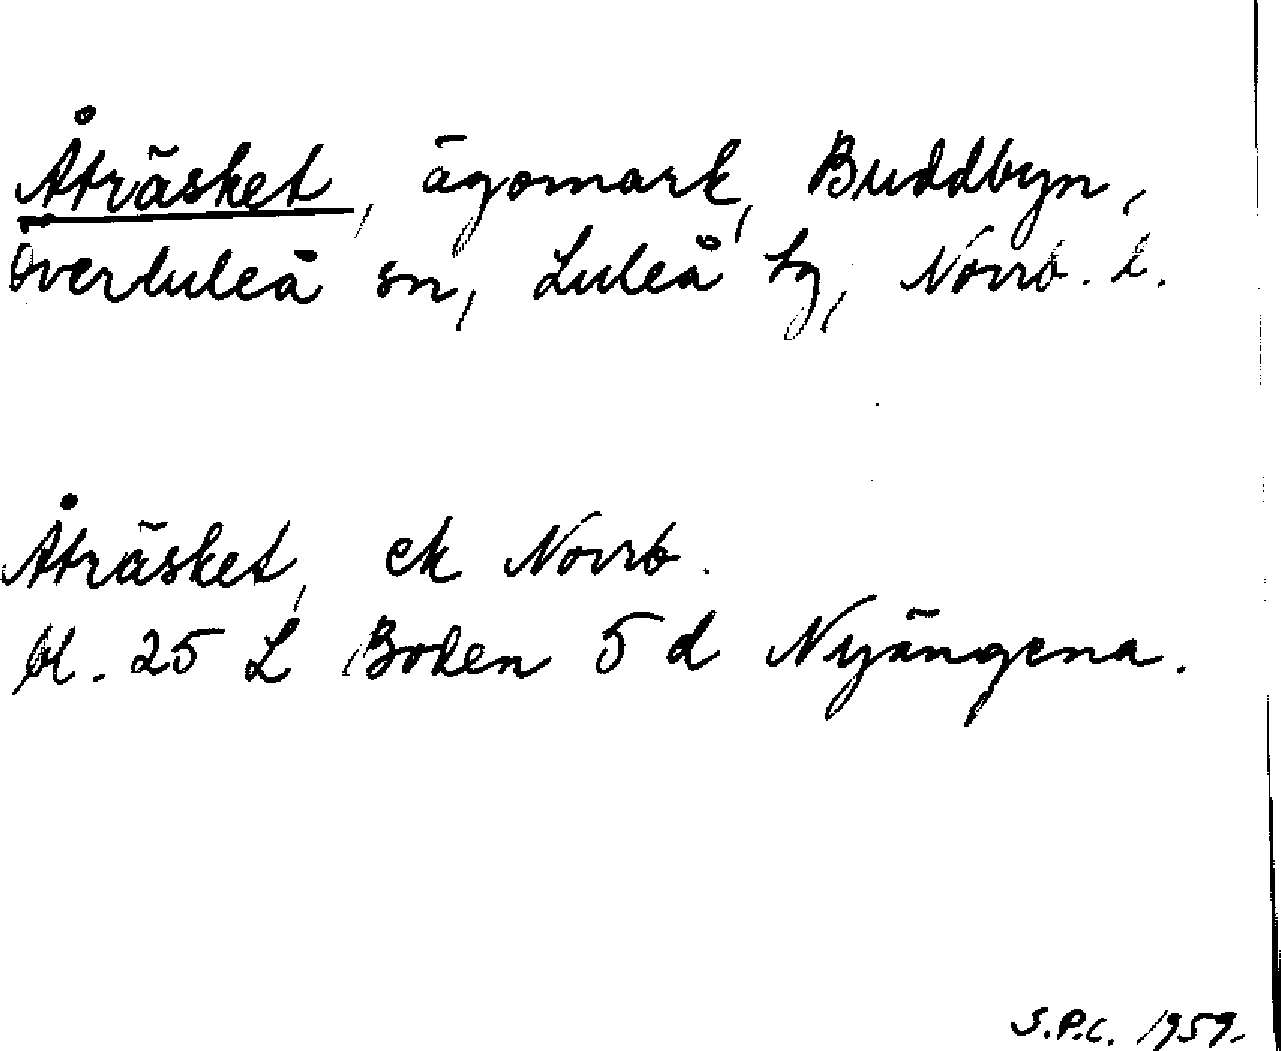 Åträsket, ägomark, Buddbyn,
Överluleå sn, Luleå tg, Norrb. l.
Åträsket, ek Norrb.
bl. 25 L Boden 5 d Nyängena.
S.P.C. 1959.